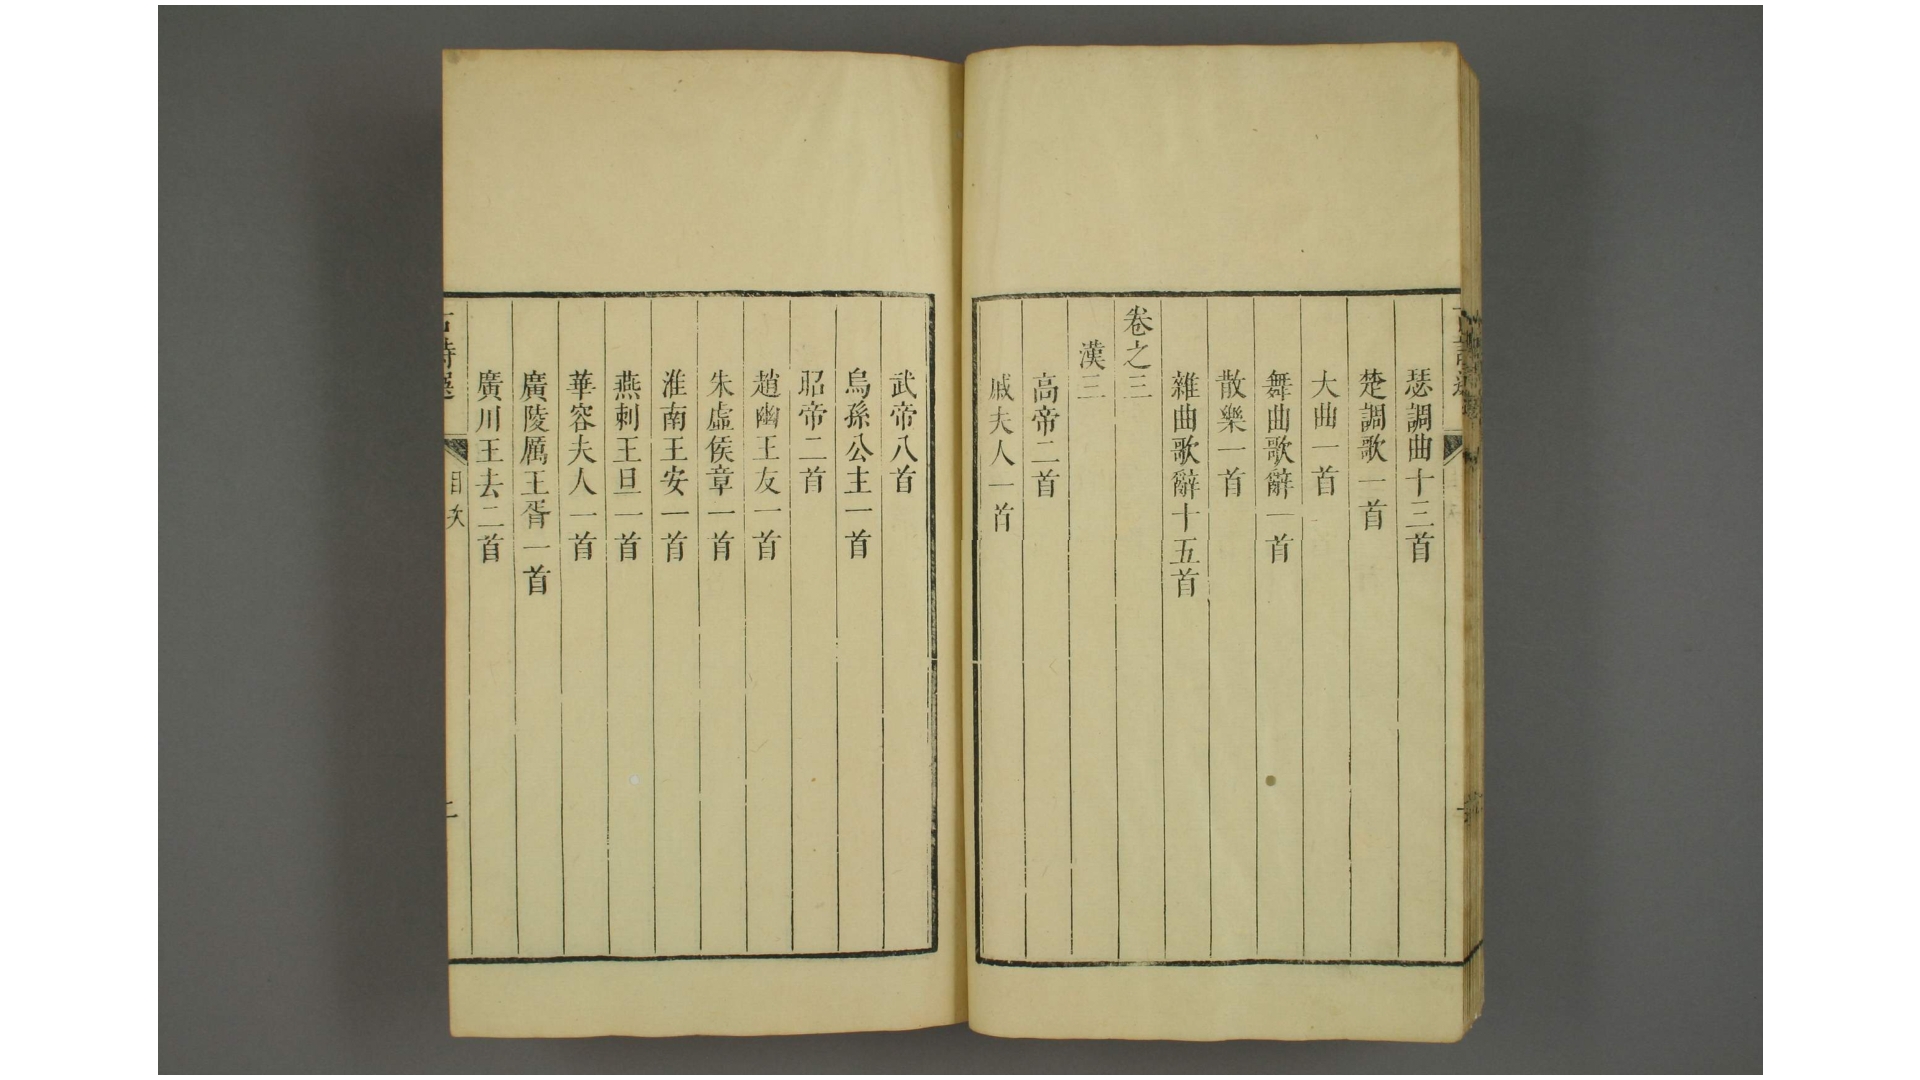 瑟調曲十三首
楚調歌一首
大曲一首
舞曲歌辭一首
散樂一首
雜曲歌辭十五首
卷之三
漢三
高帝二首
戚夫人一首
武帝八首
烏孫公主一首
昭帝二首
趙幽王友一首
朱虛侯章一首
淮南王安一首
燕刺王旦一首
華容夫人一首
廣陵厲王胥一首
廣川王去二首
古詩選
目次